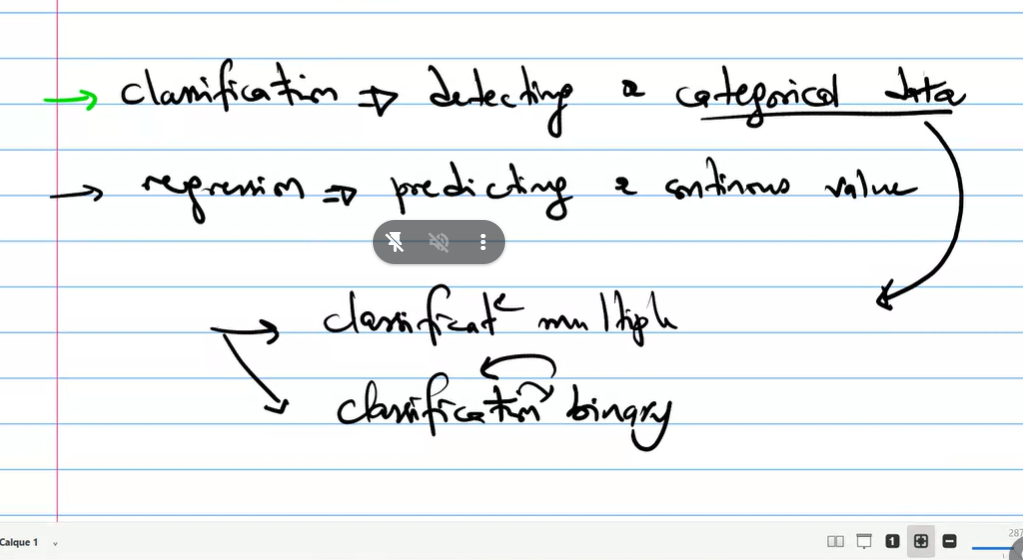 → classification ⇒ detecting a categorical data
→ regression ⇒ predicting a continous value
→ classificat multiple
classification binary
Calque 1
1
287